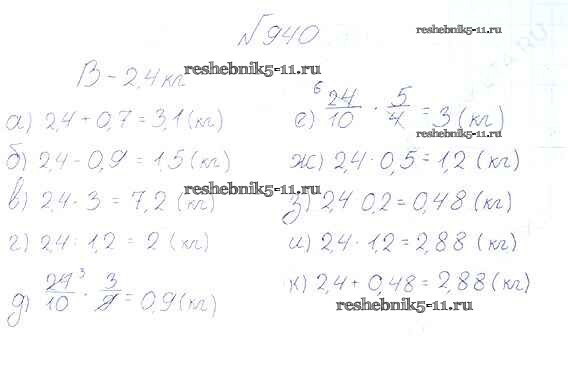 №940
reshebnik5-11.ru
В - 2,4 кг
reshebnik5-11.ru
а) 2,4 + 0,7 = 3,1 (кг)
б) 2,4 - 0,9 = 1,5 (кг)
reshebnik5-11.ru
в) 2,4 · 3 = 7,2 (кг)
reshebnik5-11.ru
г) 2,4 : 1,2 = 2 (кг)
д) 24/10 ³ · 3/8 = 0,9 (кг)
е) ⁶ 24/10 · 5/4 = 3 (кг)
reshebnik5-11.ru
ж) 2,4 · 0,5 = 1,2 (кг)
з) 2,4 0,2 = 0,48 (кг)
и) 2,4 · 1,2 = 2,88 (кг)
к) 2,4 + 0,48 = 2,88 (кг)
reshebnik5-11.ru